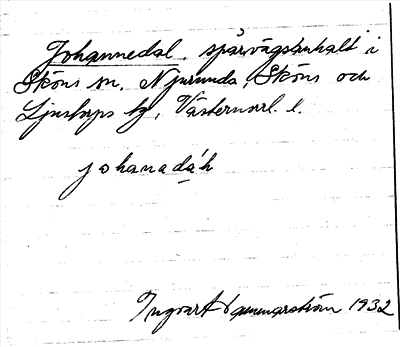 Johannedal. spårvägsanhalt i
Sköns sn. Njurunda, Sköns och
Ljustorps tg, Västernorrl. l.
johanadáh
Ingvart Hammarström 1932